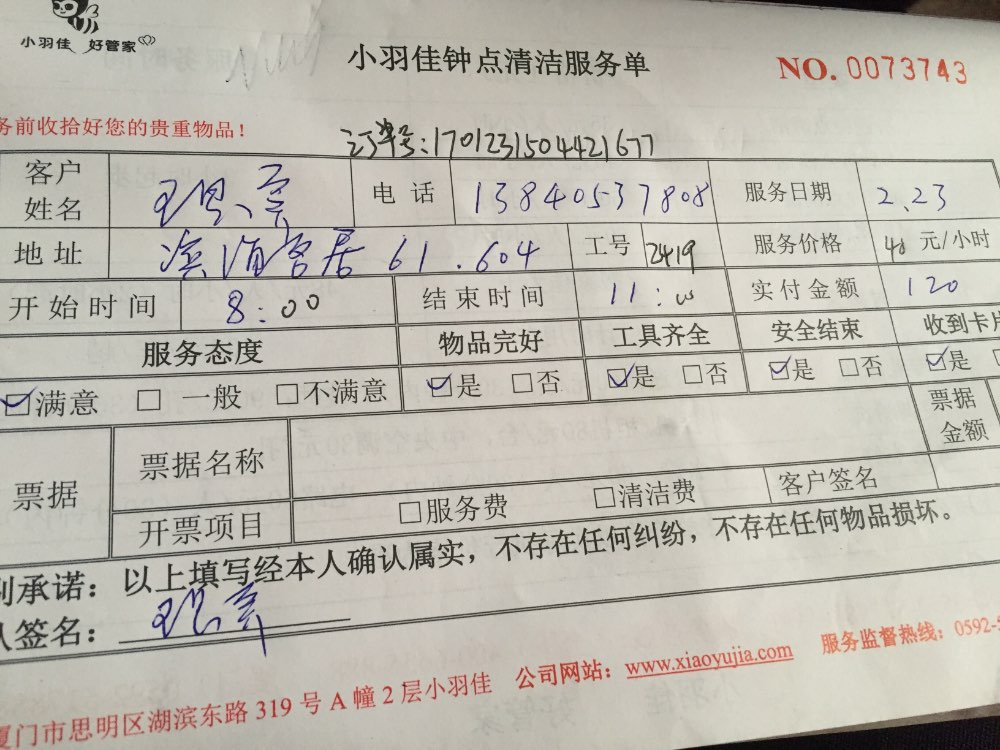 小羽佳 好管家
小羽佳钟点清洁服务单
NO. 0073743
务前收拾好您的贵重物品！
订单号:1701231504421677
客户姓名 电话 13840537808 服务日期 2.23
地址 61.604 工号 2419 服务价格 40 元/小时
开始时间 8:00 结束时间 11:00 实付金额 120
服务态度 物品完好 工具齐全 安全结束 收到卡片
☑满意 □ 一般 □不满意 ☑是 □否 ☑是 □否 ☑是 □否 ☑是 □
票据 票据名称 票据金额
开票项目 □服务费 □清洁费 客户签名
别承诺：以上填写经本人确认属实，不存在任何纠纷，不存在任何物品损坏。
人签名：
厦门市思明区湖滨东路 319 号 A 幢 2 层小羽佳 公司网站：www.xiaoyujia.com 服务监督热线：0592-